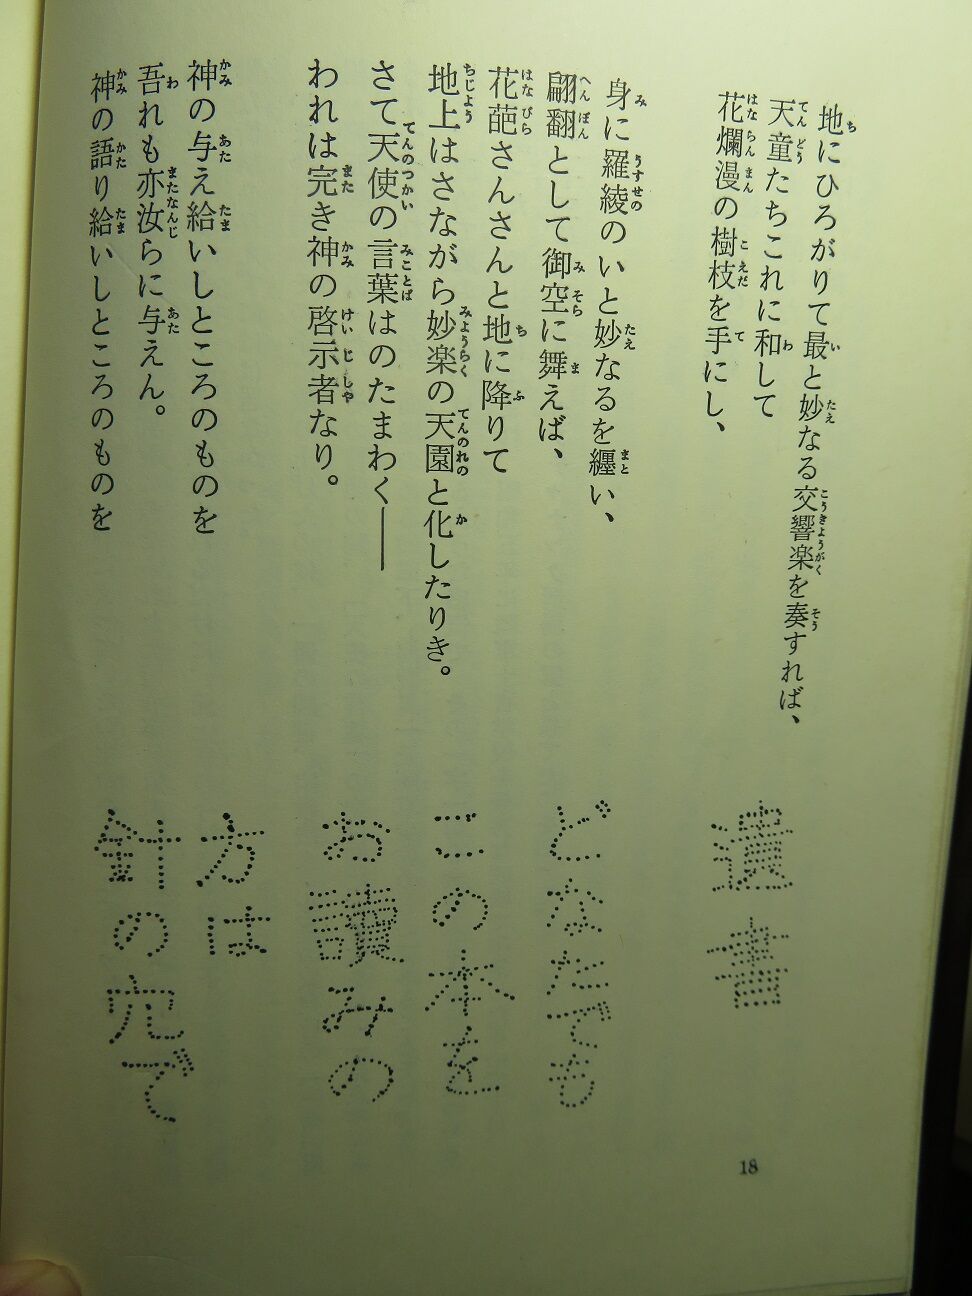 地にひろがりて最と妙なる交響楽を奏すれば、
天童たちこれに和して
花爛漫の樹枝を手にし、
身に羅綾のいと妙なるを纏い、
翩翻として御空に舞えば、
花葩さんさんと地に降りて
地上はさながら妙楽の天園と化したりき。
さて天使の言葉はのたまわく――
われは完き神の啓示者なり。
神の与え給いしところのものを
吾れも亦汝らに与えん。
神の語り給いしところのものを
遺書
どなたでも
この本を
お讀みの
方は
針の穴で
18